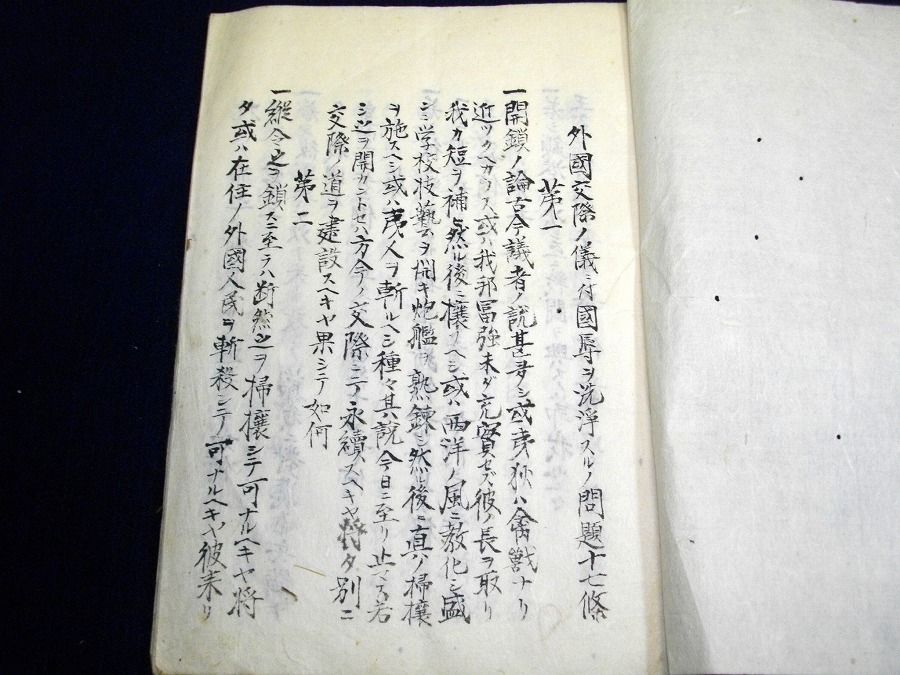 外國交際ノ儀ニ付國辱ヲ洗浮スルノ問題十七條
第一
一開鎖ノ論古今議者ノ説甚多シ或夷狄ハ禽獣ナリ
近ツクヘカラス或ハ我邦冨強未ダ充實セズ彼ノ長ヲ取リ
我カ短ヲ補ヒ然ル後ニ攘フヘシ或ハ西洋ノ風ニ教化シ盛
シニ学校技藝ヲ開キ炮艦熟錬シ然ル後ニ真ノ掃攘
ヲ施スヘシ或ハ夷人ヲ斬ルヘシ種々其説今日ニ至リ止マス若
シ之ヲ開カントセハ方今ノ交際ニテ永續スヘキヤ将タ別ニ
交際ノ道ヲ建設スヘキヤ果シテ如何
第二
一縦令之ヲ鎖スニ至ラハ断然之ヲ掃攘シテ可ナルヘキヤ将
タ或ハ在住ノ外國人民ヲ斬殺シテ可ナルヘキヤ彼来リ